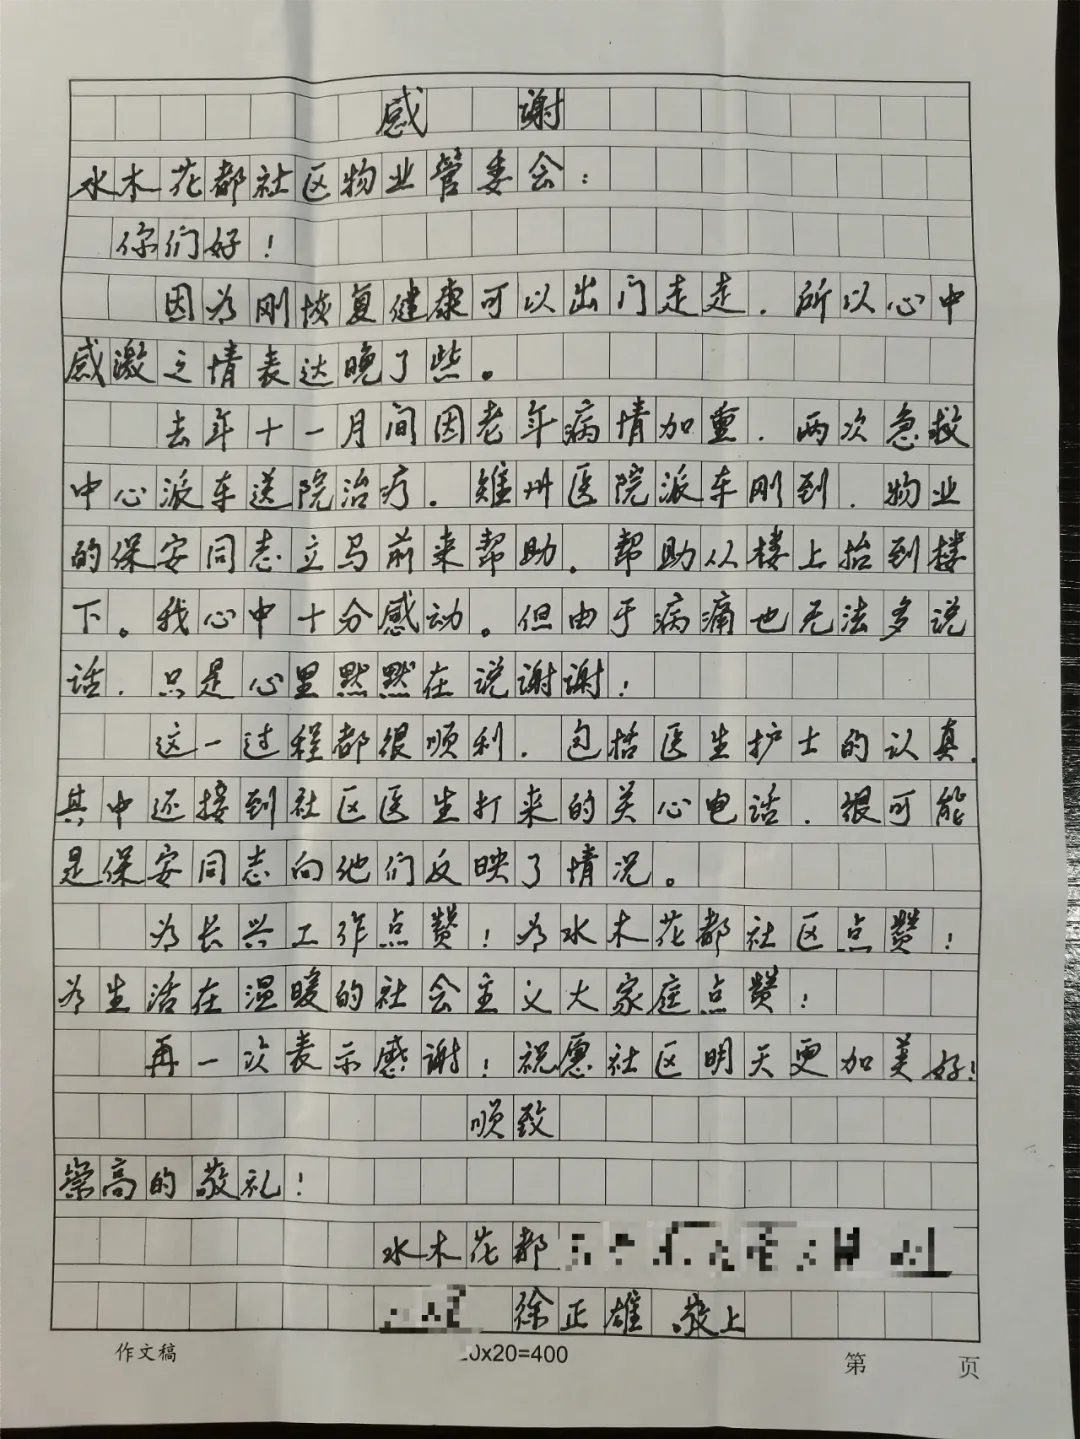 感 谢
水木花都社区物业管委会：
你们好！
因为刚恢复健康可以出门走走．所以心中
感激之情表达晚了些。
去年十一月间因老年病情加重．两次急救
中心派车送院治疗．雉州医院派车刚到．物业
的保安同志立马前来帮助．帮助从楼上抬到楼
下。我心中十分感动。但由于病痛也无法多说
话．只是心里默默在说谢谢！
这一过程都很顺利．包括医生护士的认真．
其中还接到社区医生打来的关心电话．很可能
是保安同志向他们反映了情况。
为长兴工作点赞！为水木花都社区点赞！
为生活在温暖的社会主义大家庭点赞！
再一次表示感谢！祝愿社区明天更加美好！
顺致
崇高的敬礼！
水木花都
徐正雄 敬上
作文稿 20x20=400 第 页